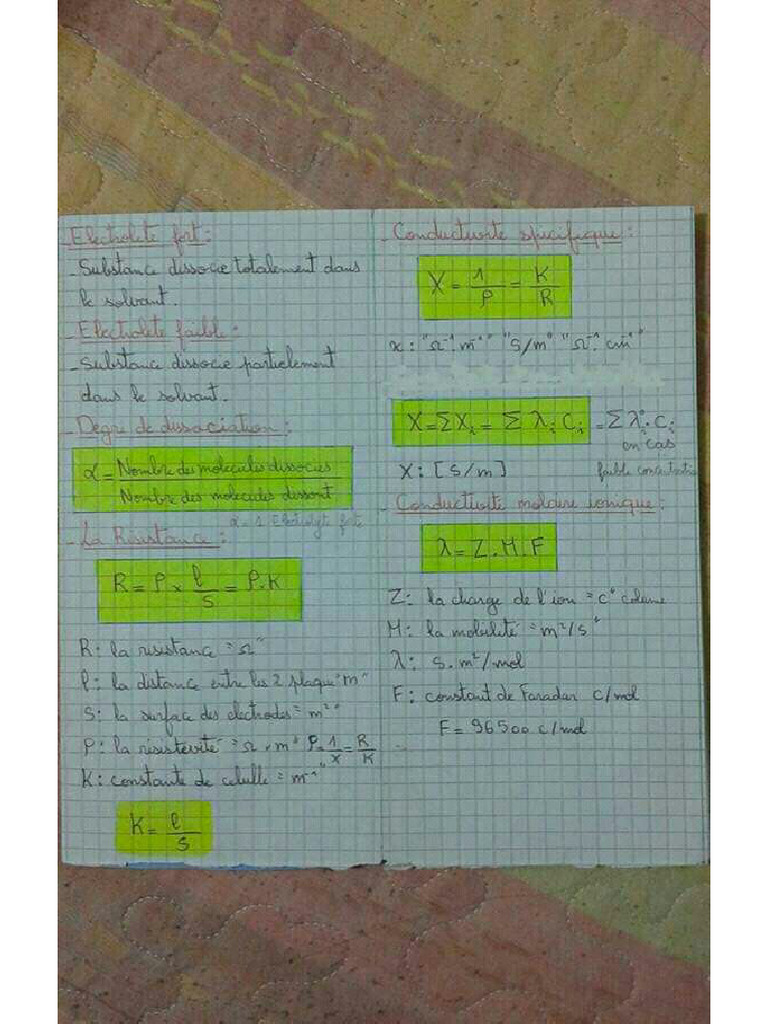 - Electrolite fort :
- Substance dissocie totalement dans
le solvant.
- Electrolite faible :
- Substance dissocie partielement
dans le solvant.
- Degre de dissociation :
α = Nombre des molecules dissocies
Nombre des molecules dissout
α = 1 Electrolyte forte
- La Résistance :
R = ρ × l/S = ρ.K
R : la resistance = "Ω"
l : la distance entre les 2 plaque "m"
S : la surface des electrodes = "m²"
ρ : la resistevité = "Ω × m" ρ = 1/X = R/K
K : constante de celulle = "m⁻¹"
K = l/S
- Conductivite specifique :
X = 1/ρ = K/R
x : "Ω⁻¹.m⁻¹" "S/m" "Ω⁻¹.cm⁻¹"
X = ΣXi = Σ λi Ci = Σ λi°.Ci
en cas
X : [S/m] faible concentration
- Conductivite molaire ionique :
λ = Z.M.F
Z : la charge de l'ion = "c" colume
M : la mobilité = "m²/s"
λ : S.m²/mol
F : constant de Faradar c/mol
F = 96500 c/mol